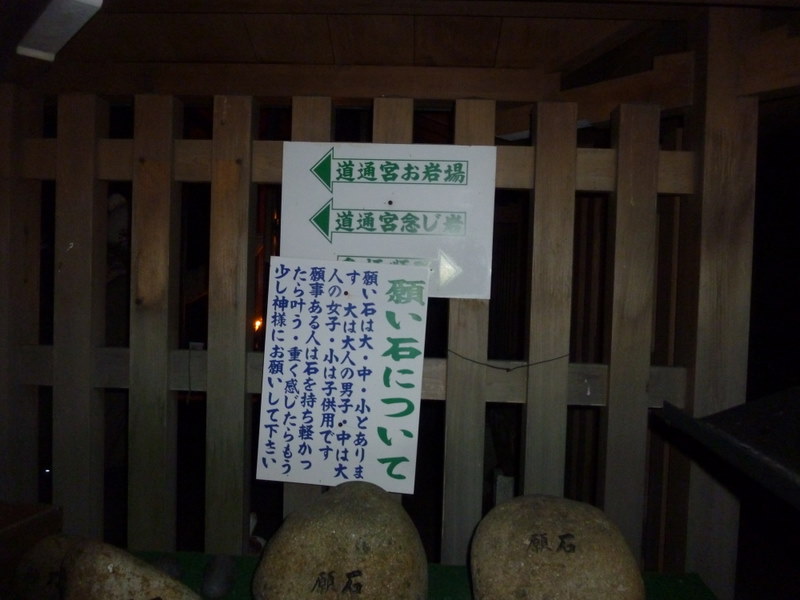 道通宮お岩場
道通宮念じ岩
願い石について
願い石は大・中・小とありま
す。大は大人の男子・中は大
人の女子・小は子供用です
願事ある人は石を持ち軽かっ
たら叶う・重く感じたらもう
少し神様にお願いして下さい
願石
願石